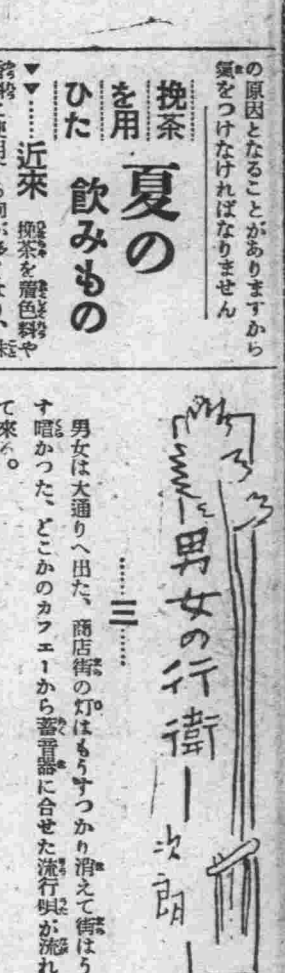 の原因となることがありますから
氣をつけなければなりません
挽茶
を用
ひた
夏の
飲みもの
▼▼……近來 挽茶を着色料や
男女の行衛
次朗
……三……
男女は大通りへ出た、商店街の灯はもうすつかり消えて街はう
す暗かつた、どこかのカフエーから蓄音器に合せた流行唄が流れ
て來